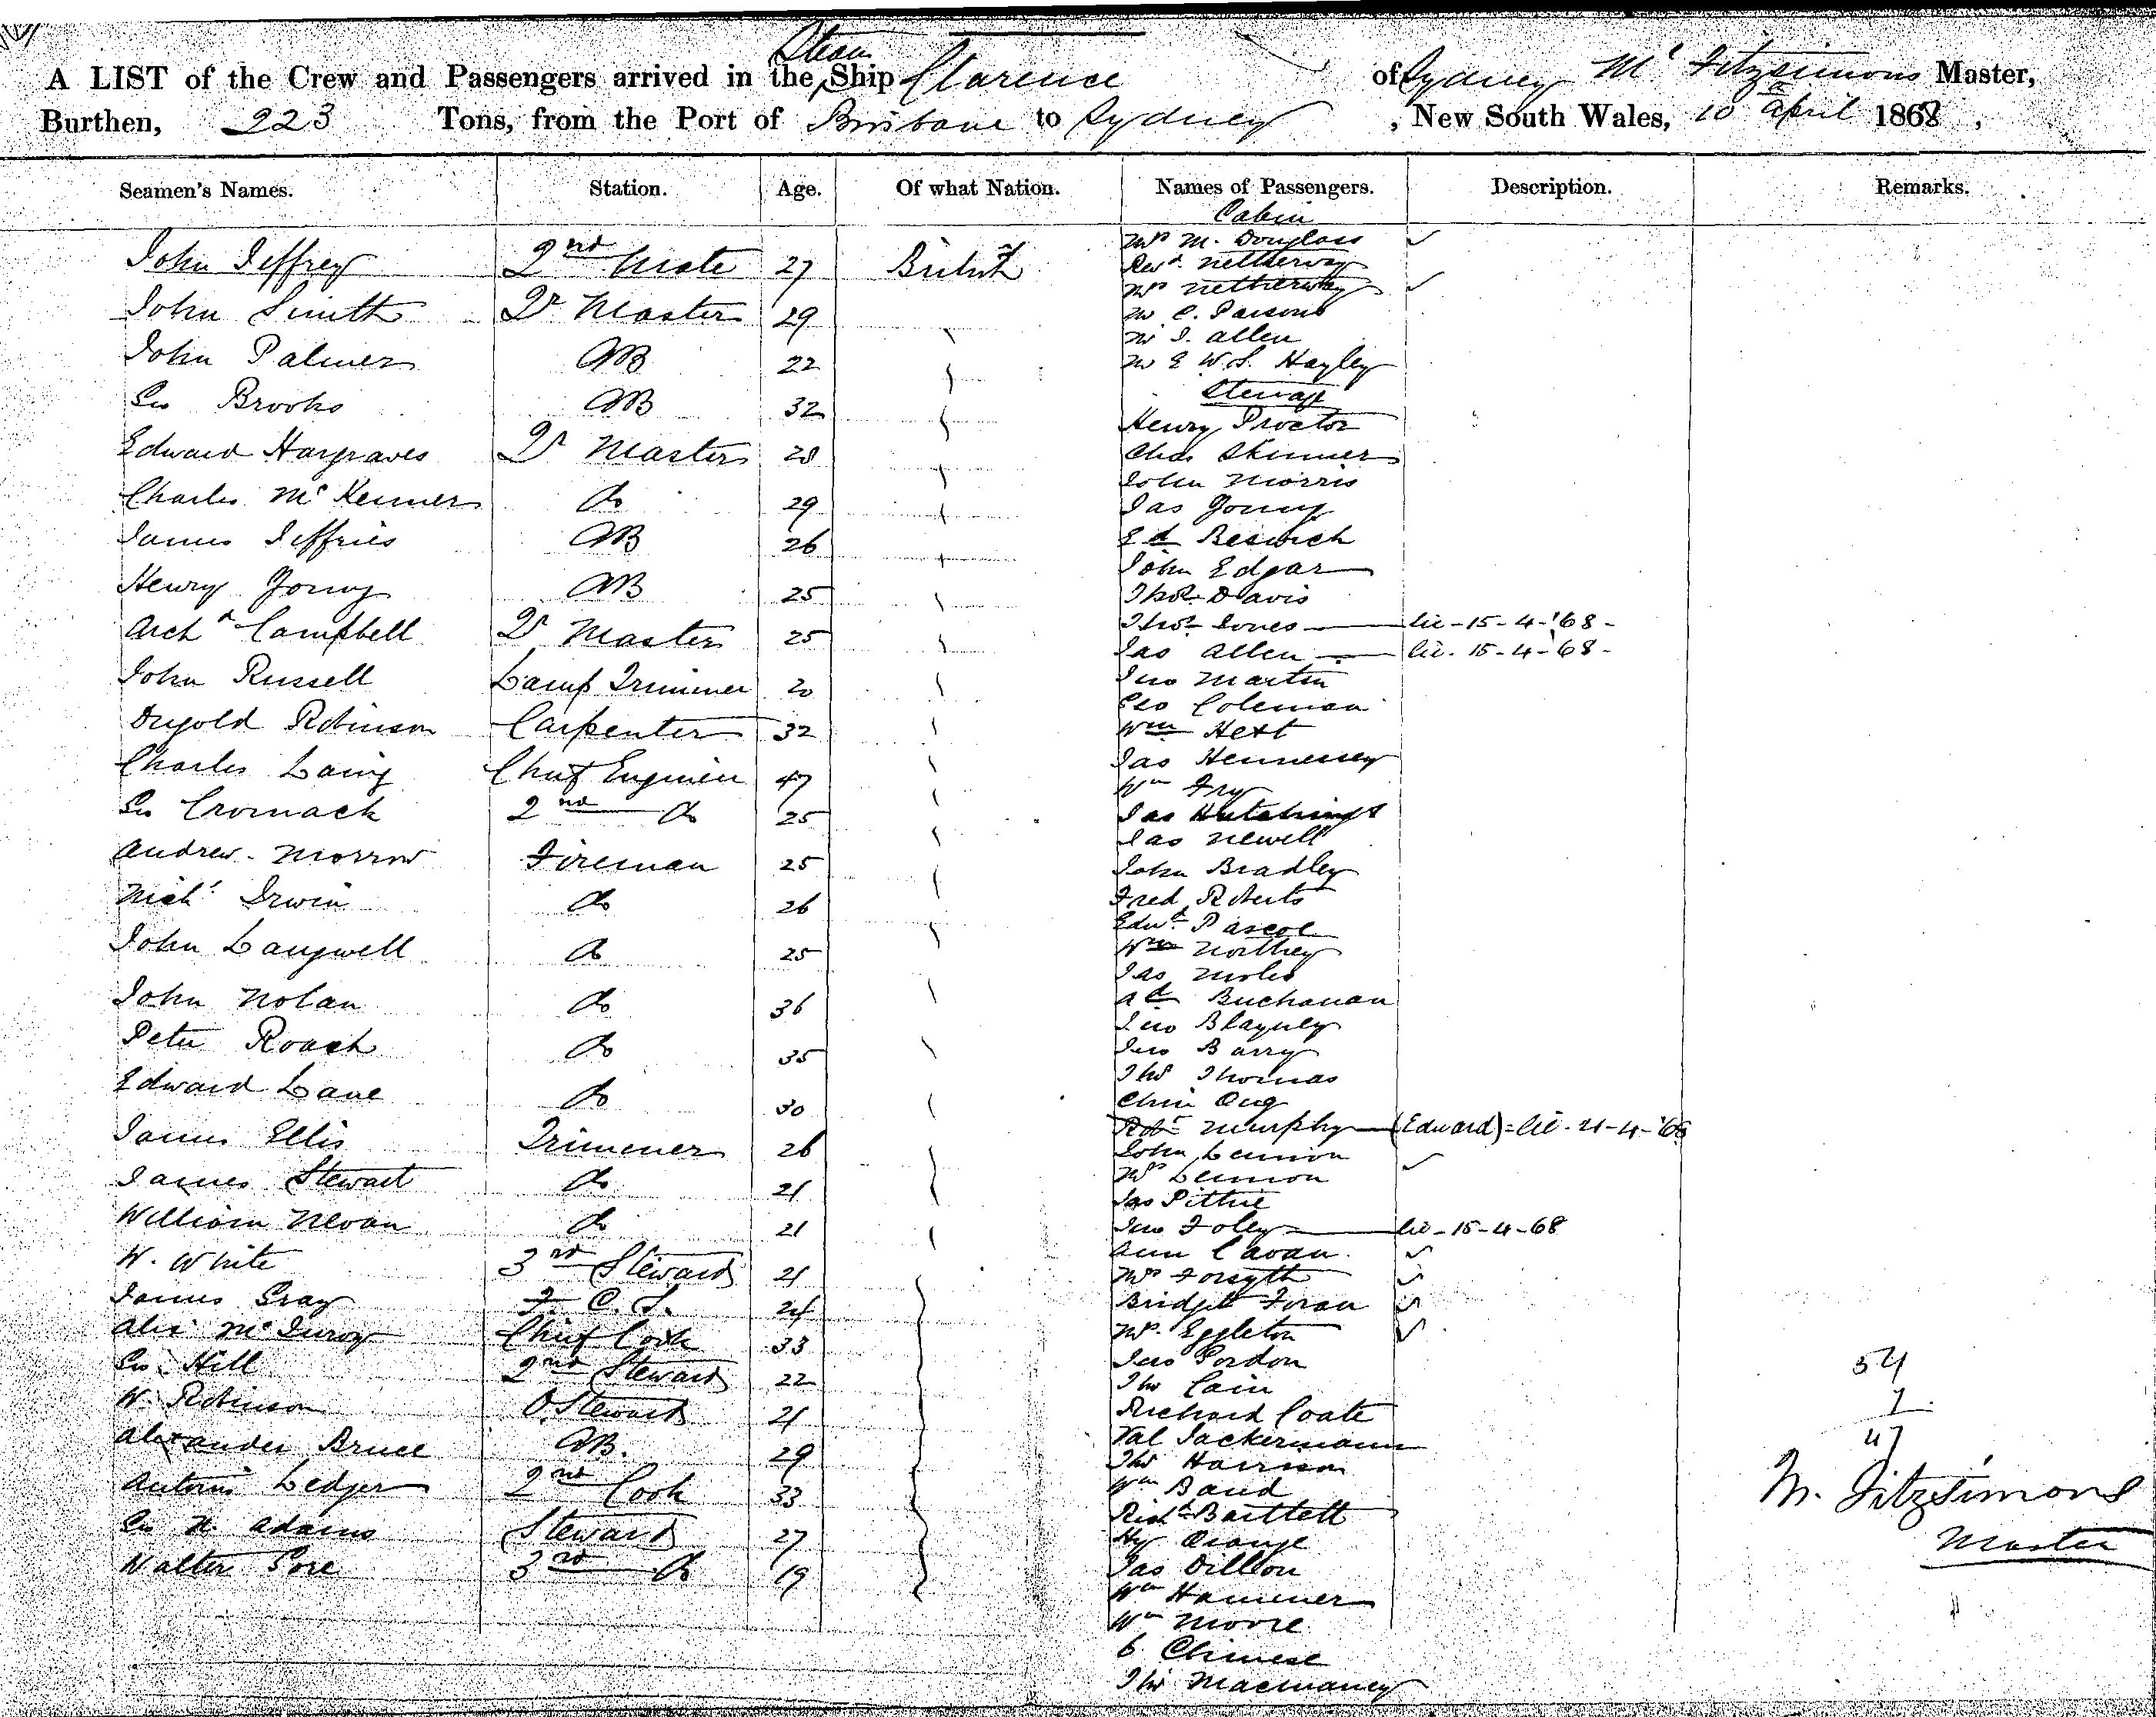 Steam
A LIST of the Crew and Passengers arrived in the Ship Clarence of Sydney M Fitzsimons Master,
Burthen, 223 Tons, from the Port of Brisbane to Sydney, New South Wales, 10 April 1868,
Seamen's Names. Station. Age. Of what Nation. Names of Passengers. Description. Remarks.
John Jeffrey 2nd Mate 27 British
John Smith Qr Master 29
John Palmer AB 22
Geo Brooks AB 32
Edward Hargraves Qr Master 28
Charles McKenner do 29
James Jeffries AB 26
Henry Young AB 25
Archd Campbell Qr Master 25
John Russell Lamp Trimmer 20
Dugold Robinson Carpenter 32
Charles Laing Chief Engineer 47
Geo Cromack 2nd do 25
Andrew Morrow Fireman 25
Michl Irwin do 26
John Langwell do 25
John Nolan do 36
Peter Roach do 35
Edward Lane do 30
James Ellis Trimmer 26
James Stewart do 21
William do 21
W. White 3rd Steward 21
James Gray F. C. S. 24
Alex McIlroy Chief Cook 33
Geo Hill 2nd Steward 22
W. Robinson Steward 21
Alexander Bruce AB. 29
Antonio Ledger 2nd Cook 33
Geo H. Adams Steward 27
Walter Gore 3rd do 19
Cabin
Mrs M. Douglass
Revd Netherway
Mrs Netherway
Mr C. Parsons
Mr J. Allen
Mr E W. S. Hayley
Steerage
Henry Proctor
Chas Skinner
John Morris
Jas Young
Ed Beswick
John Edgar
Thos Davis
Thos Jones lic - 15-4-'68-
Jas Allen lic - 15-4-'68-
Jno Martin
Geo Coleman
Wm Hext
Jas Hennessey
Wm Fry
Jas Hutchings
Jas Newell
John Bradley
Fred Roberts
Edwd Pascoe
Wm Northey
Jas Moles
Ad Buchanan
Jno Blayney
Jno Barry
Thos Thomas
Chin Ong
Robt Murphy (Edward) = lic - 21-4-'68
John Lennon
Mrs Lennon
Jas Pittie
Jno Foley lic - 15-4-68
Ann Cavan
Mrs Forsyth
Bridget Foran
Mrs Eggleton
Jno Gordon
Thos Cain
Richard Coate
Val Jackermann
Thos Harrison
Wm Band
Richd Bartlett
Hy Orange
Jas Dillon
Wm Hammer
Wm Moore
6 Chinese
Thos Macmaney
54
7
47
M. Fitzsimons
Master